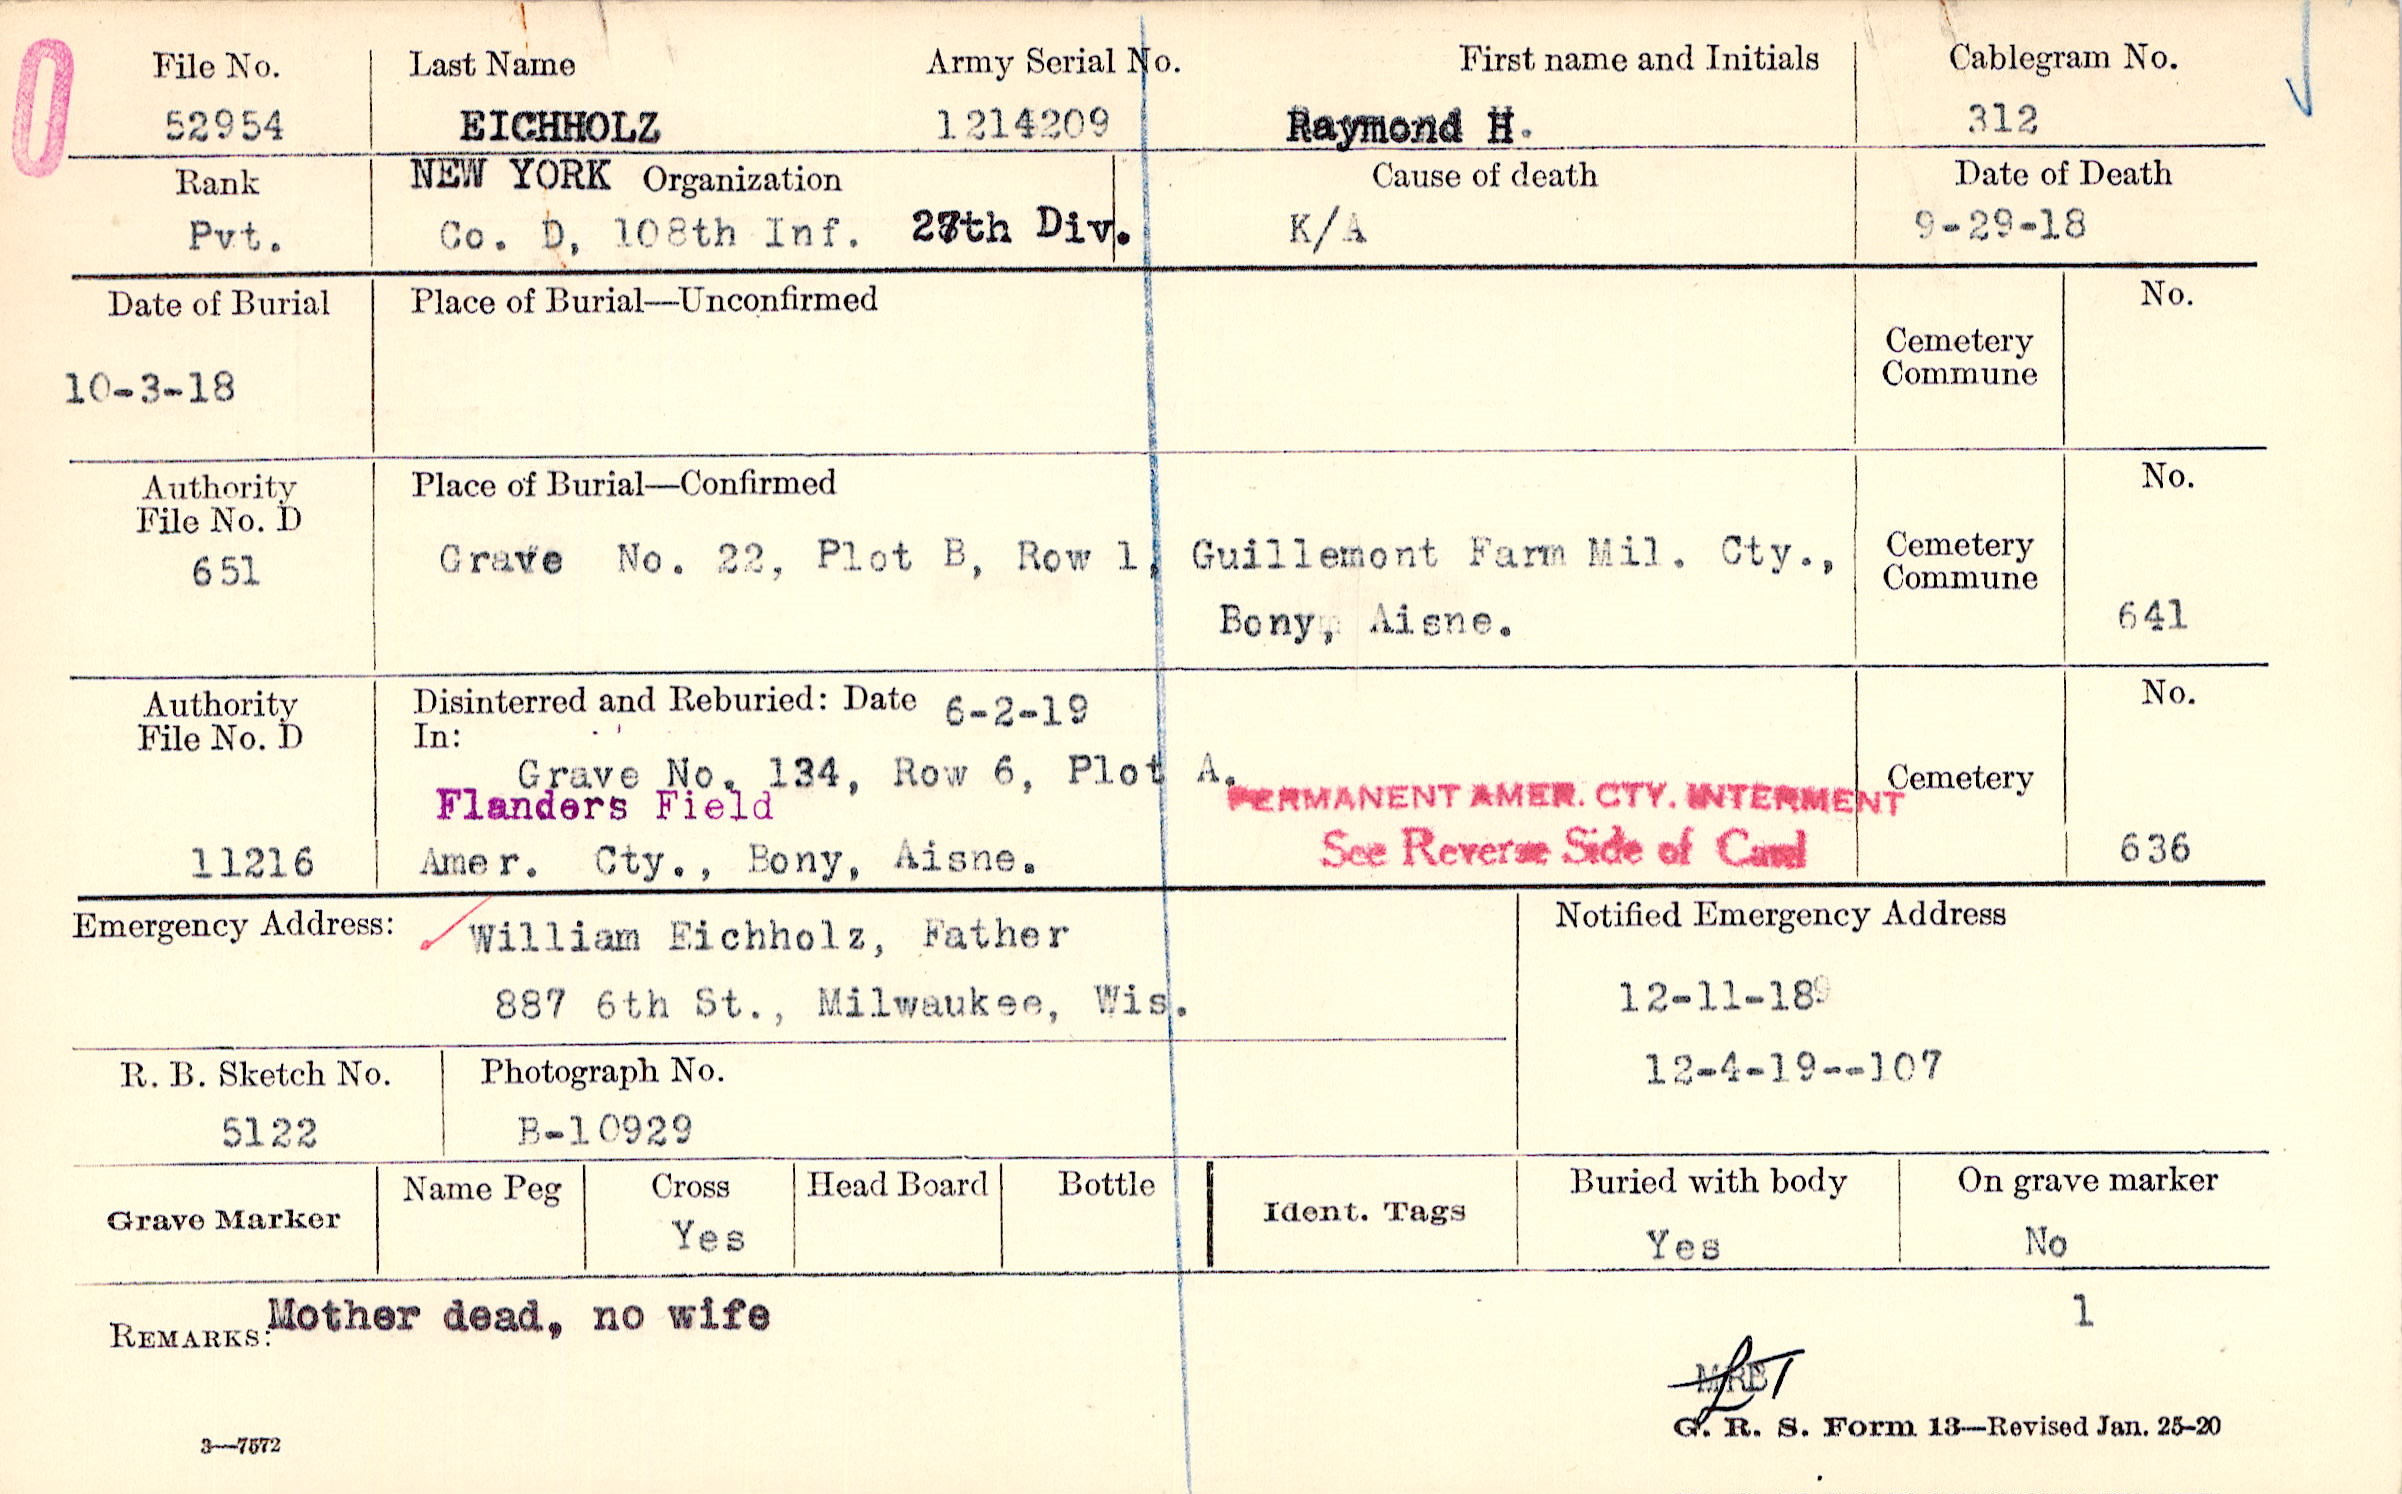 File No. Last Name Army Serial No. First name and Initials Cablegram No.
52954 EICHHOLZ 1214209 Raymond H. 312
Rank NEW YORK Organization Cause of death Date of Death
Pvt. Co. D, 108th Inf. 27th Div. K/A 9-29-18
Date of Burial Place of Burial—Unconfirmed No.
Cemetery
Commune
10-3-18
Authority Place of Burial—Confirmed No.
File No. D
651 Grave No. 22, Plot B, Row 1, Guillemont Farm Mil. Cty., Cemetery
Commune
Bony, Aisne. 641
Authority Disinterred and Reburied: Date 6-2-19 No.
File No. D In:
Grave No. 134, Row 6, Plot A. Cemetery
Flanders Field PERMANENT AMER. CTY. INTERMENT
11216 Amer. Cty., Bony, Aisne. See Reverse Side of Card 636
Emergency Address: William Eichholz, Father Notified Emergency Address
887 6th St., Milwaukee, Wis. 12-11-18
12-4-19--107
R. B. Sketch No. Photograph No.
5122 B-10929
Grave Marker Name Peg Cross Head Board Bottle Ident. Tags Buried with body On grave marker
Yes Yes No
REMARKS: Mother dead, no wife 1
3—7572 G. R. S. Form 13—Revised Jan. 25-20